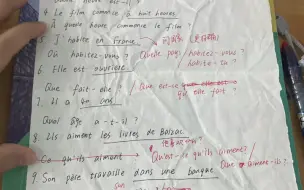 4. Le film commence à huit heures
À quelle heure commence le film ?
J'habite en France
Où habitez-vous ? / Quelle pays habitez-vous ?
habite-tu ?
6. Elle est ouvrière
Que fait-elle ? / Que est-ce
qu'elle fait ?
7. Il a 40 ans
Quel âge a-t-il ?
8. Ils aiment les livres de Balzac
Ce qu'ils aiment → Qu'est- qu'ils aiment ?
Que aiment-ils ?
9. Son père travaille dans une banque